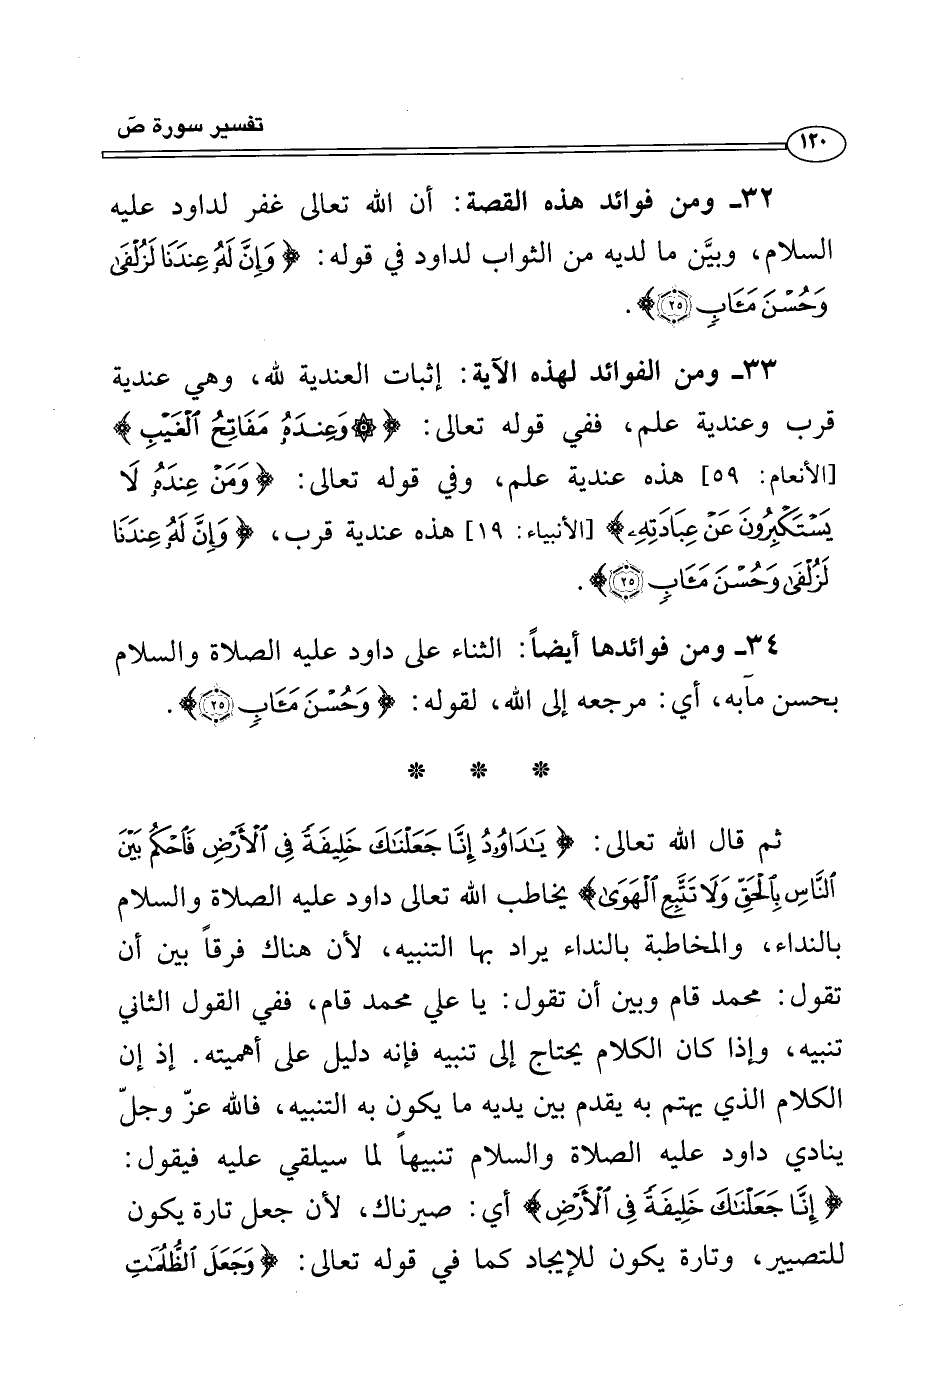 تفسير سورة صَ
١٢٠
٣٢ـ ومن فوائد هذه القصة: أن الله تعالى غفر لداود عليه
السلام، وبيَّن ما لديه من الثواب لداود في قوله: ﴿وَإِنَّ لَهُۥ عِندَنَا لَزُلْفَىٰ
وَحُسْنَ مَـَٔابٍ ٢٥﴾.
٣٣ـ ومن الفوائد لهذه الآية: إثبات العندية لله، وهي عندية
قرب وعندية علم، ففي قوله تعالى: ﴿۞ وَعِندَهُۥ مَفَاتِحُ ٱلْغَيْبِ﴾
[الأنعام: ٥٩] هذه عندية علم، وفي قوله تعالى: ﴿وَمَنْ عِندَهُۥ لَا
يَسْتَكْبِرُونَ عَنْ عِبَادَتِهِۦ﴾ [الأنبياء: ١٩] هذه عندية قرب، ﴿وَإِنَّ لَهُۥ عِندَنَا
لَزُلْفَىٰ وَحُسْنَ مَـَٔابٍ ٢٥﴾.
٣٤ـ ومن فوائدها أيضاً: الثناء على داود عليه الصلاة والسلام
بحسن مآبه، أي: مرجعه إلى الله، لقوله: ﴿وَحُسْنَ مَـَٔابٍ ٢٥﴾.
* * *
ثم قال الله تعالى: ﴿يَـٰدَاوُۥدُ إِنَّا جَعَلْنَـٰكَ خَلِيفَةً فِى ٱلْأَرْضِ فَٱحْكُم بَيْنَ
ٱلنَّاسِ بِٱلْحَقِّ وَلَا تَتَّبِعِ ٱلْهَوَىٰ﴾ يخاطب الله تعالى داود عليه الصلاة والسلام
بالنداء، والمخاطبة بالنداء يراد بها التنبيه، لأن هناك فرقاً بين أن
تقول: محمد قام وبين أن تقول: يا علي محمد قام، ففي القول الثاني
تنبيه، وإذا كان الكلام يحتاج إلى تنبيه فإنه دليل على أهميته. إذ إن
الكلام الذي يهتم به يقدم بين يديه ما يكون به التنبيه، فالله عزّ وجلّ
ينادي داود عليه الصلاة والسلام تنبيهاً لما سيلقي عليه فيقول:
﴿إِنَّا جَعَلْنَـٰكَ خَلِيفَةً فِى ٱلْأَرْضِ﴾ أي: صيرناك، لأن جعل تارة يكون
للتصيير، وتارة يكون للإيجاد كما في قوله تعالى: ﴿وَجَعَلَ ٱلظُّلُمَـٰتِ